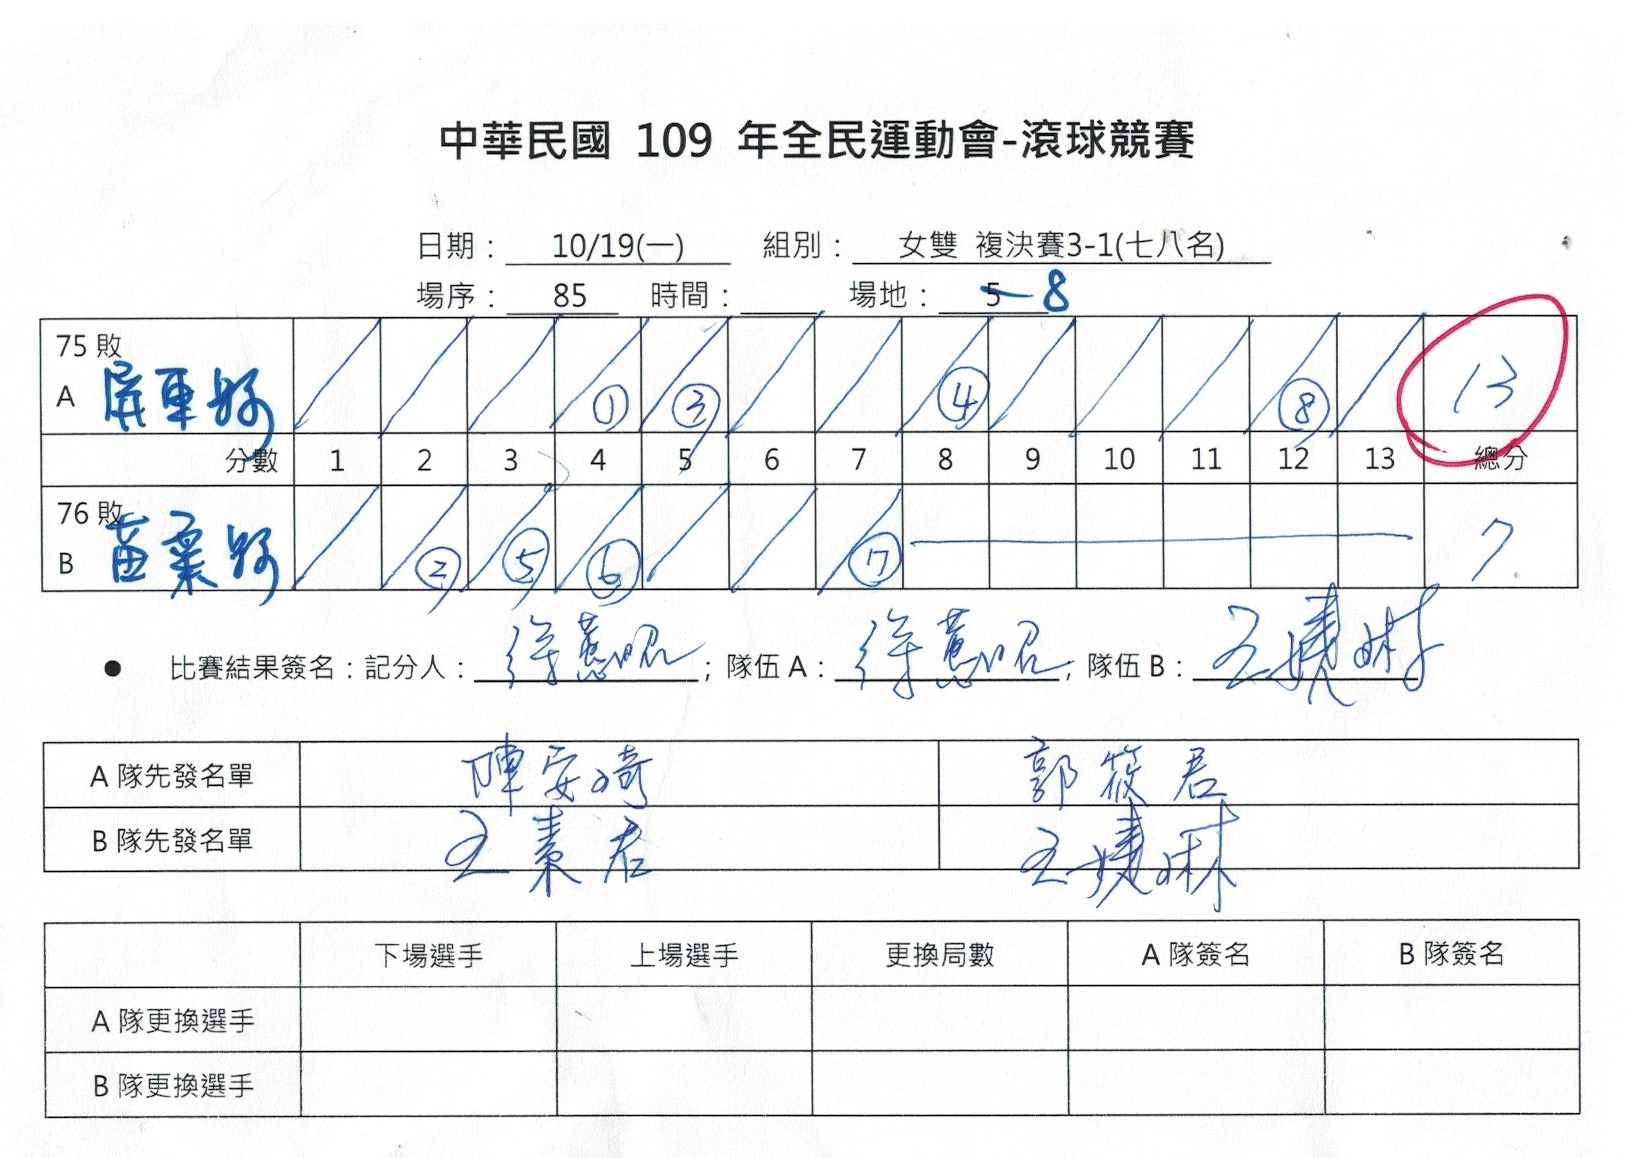 中華民國 109 年全民運動會-滾球競賽
日期： 10/19(一) 組別： 女雙 複決賽3-1(七八名)
場序： 85 時間： 場地： 5 8
75 敗
A 屏東縣 ① ③ ④ ⑧ 13
分數 1 2 3 4 5 6 7 8 9 10 11 12 13 總分
76 敗
B 苗栗縣 ② ⑤ ⑥ ⑦ 7
● 比賽結果簽名：記分人： 徐蕙昭 ；隊伍 A： 徐蕙昭 ；隊伍 B： 王婕琳
A 隊先發名單 陳安琦 郭筱君
B 隊先發名單 王素君 王婕琳
下場選手 上場選手 更換局數 A 隊簽名 B 隊簽名
A 隊更換選手
B 隊更換選手